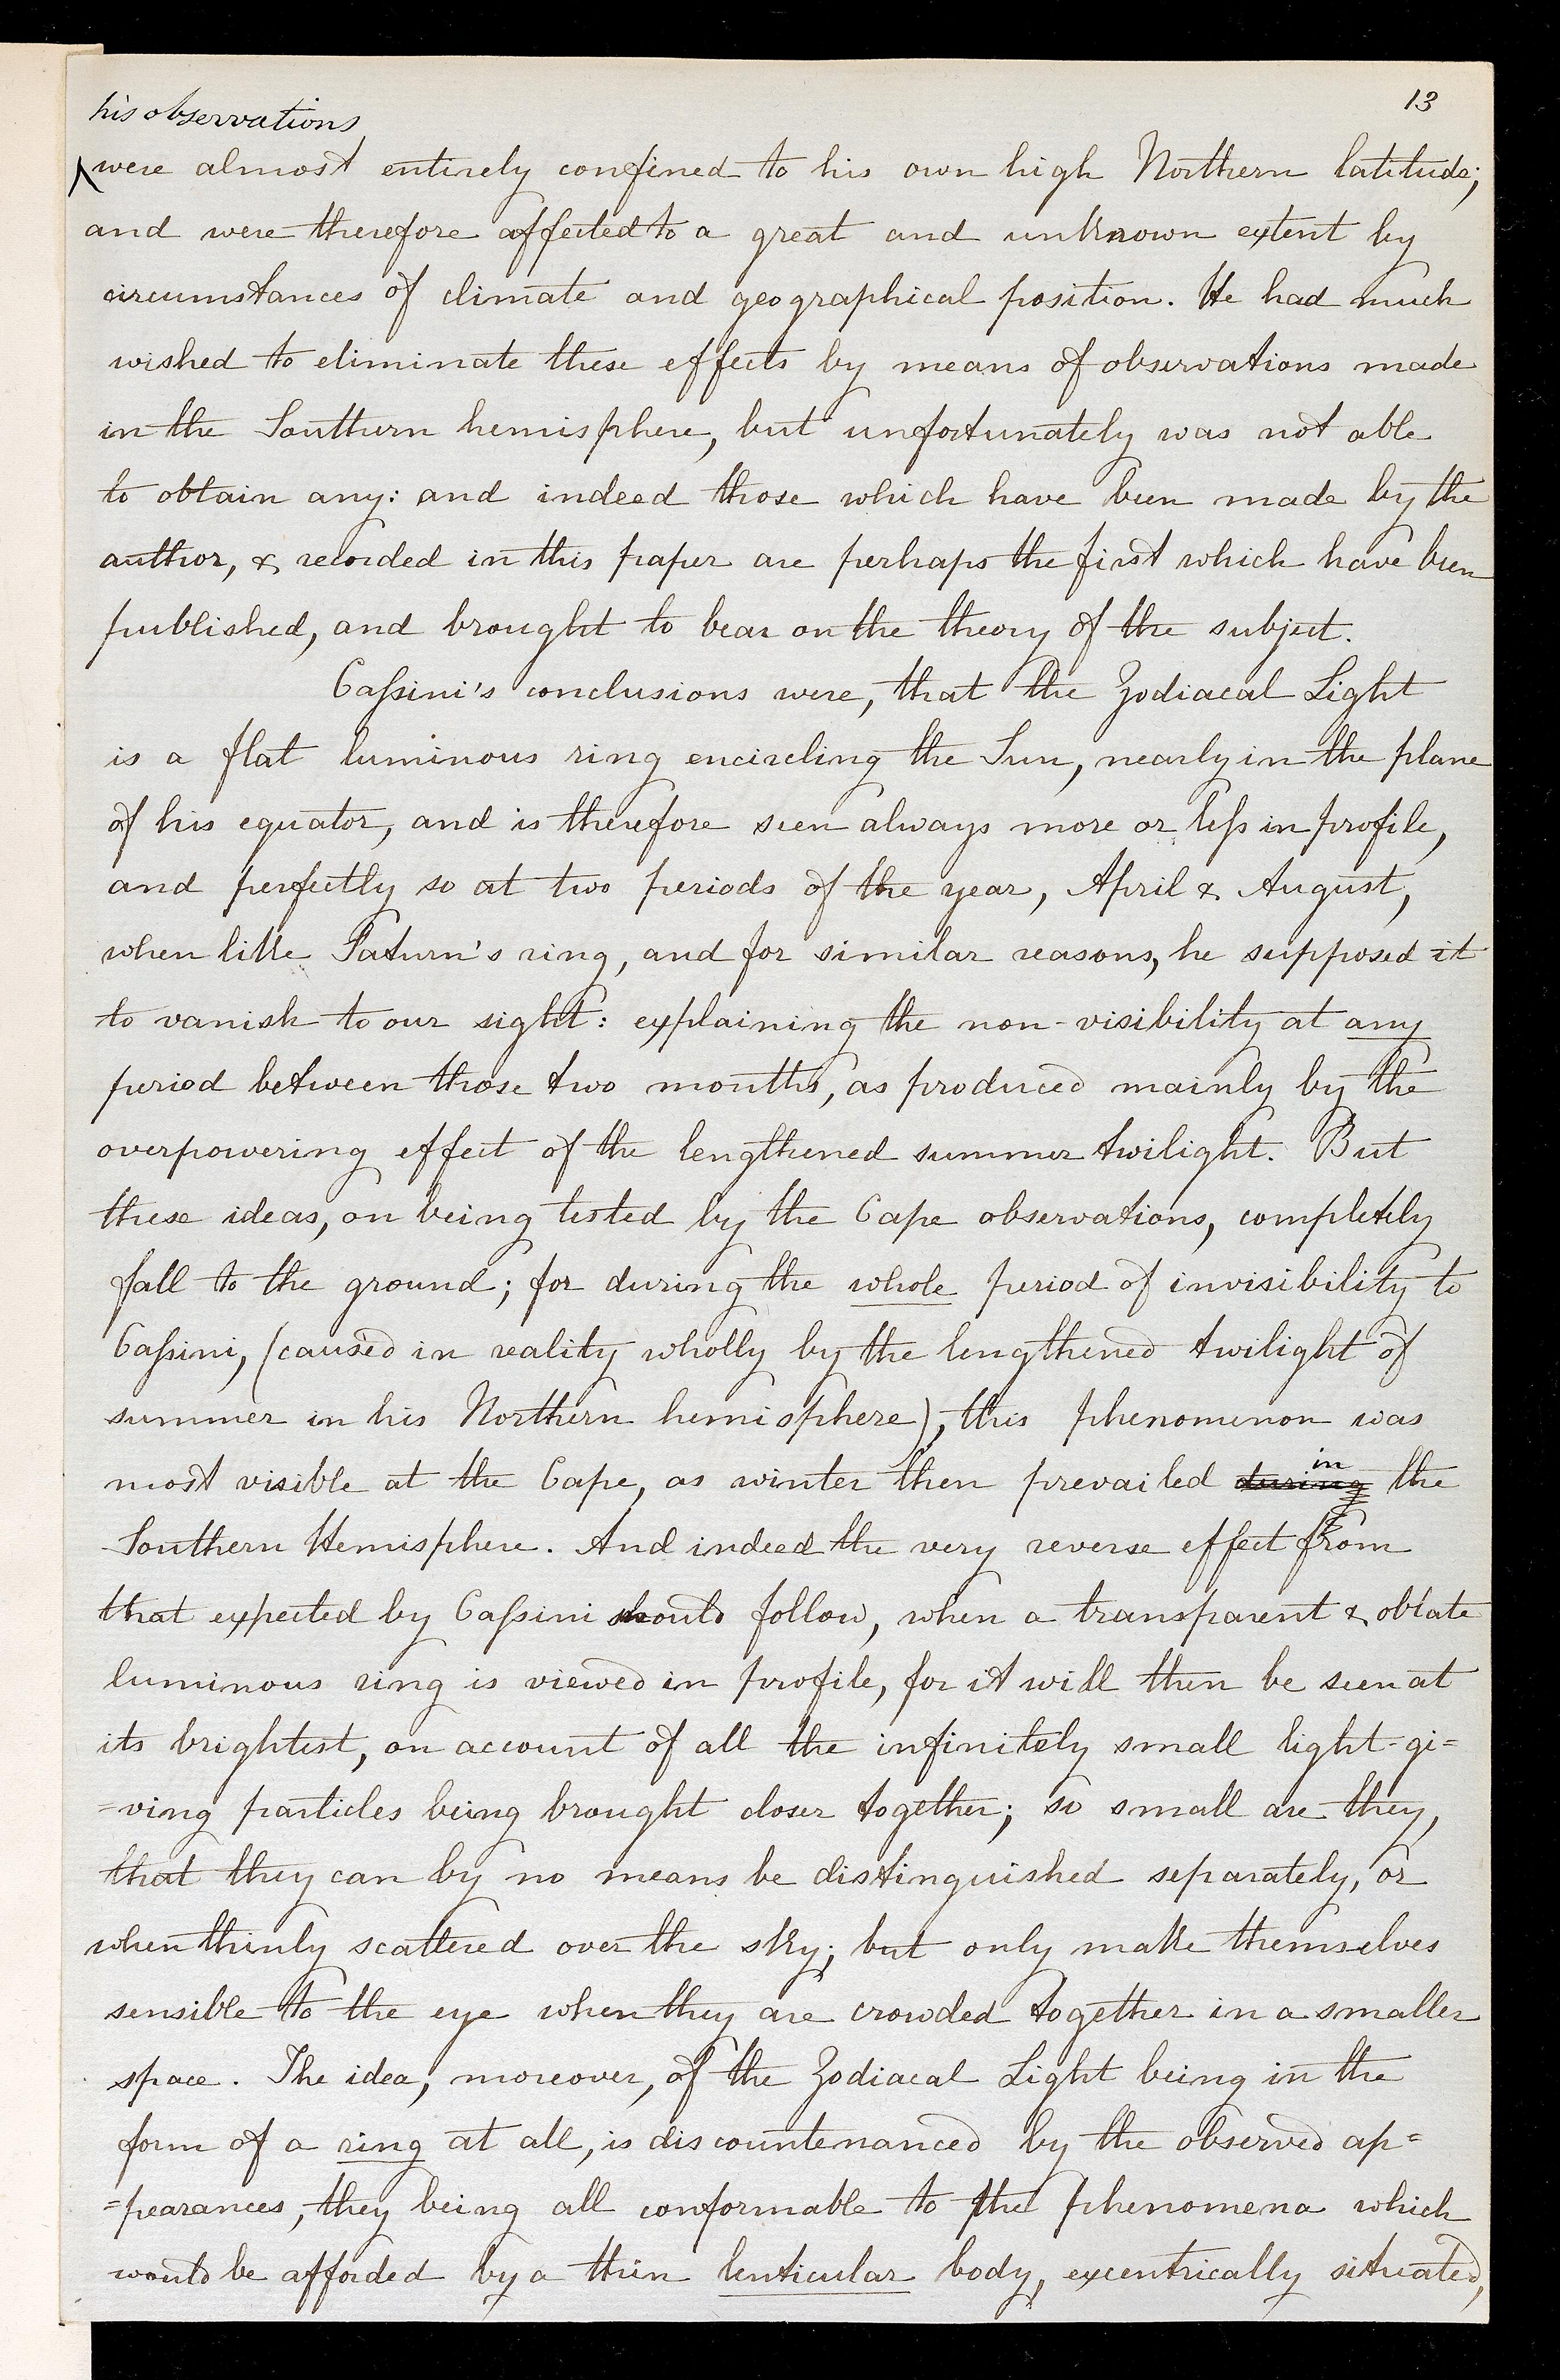 13
his observations
were almost entirely confined to his own high Northern latitude;
and were therefore affected to a great and unknown extent by
circumstances of climate and geographical position. He had much
wished to eliminate these effects by means of observations made
in the Southern hemisphere, but unfortunately was not able
to obtain any: and indeed those which have been made by the
author, & recorded in this paper are perhaps the first which have been
published, and brought to bear on the theory of the subject.
Caſsini's conclusions were, that the Zodiacal Light
is a flat luminous ring encircling the Sun, nearly in the plane
of his equator, and is therefore seen always more or leſs in profile,
and perfectly so at two periods of the year, April & August,
when like Saturn's ring, and for similar reasons, he supposed it
to vanish to our sight: explaining the non-visibility at any
period between those two months, as produced mainly by the
overpowering effect of the lengthened summer twilight. But
these ideas, on being tested by the Cape observations, completely
fall to the ground; for during the whole period of invisibility to
Caſsini, (caused in reality wholly by the lengthened twilight of
summer in his Northern hemisphere), this phenomenon was
most visible at the Cape, as winter then prevailed during in the
Southern Hemisphere. And indeed the very reverse effect from
that expected by Caſsini should follow, when a transparent & oblate
luminous ring is viewed in profile, for it will then be seen at
its brightest, on account of all the infinitely small light-gi=
=ving particles being brought closer together; so small are they,
that they can by no means be distinguished separately, or
when thinly scattered over the sky; but only make themselves
sensible to the eye when they are crowded together in a smaller
space. The idea, moreover, of the Zodiacal Light being in the
form of a ring at all, is discountenanced by the observed ap=
=pearances, they being all conformable to the phenomena which
would be afforded by a thin lenticular body, excentrically situated,